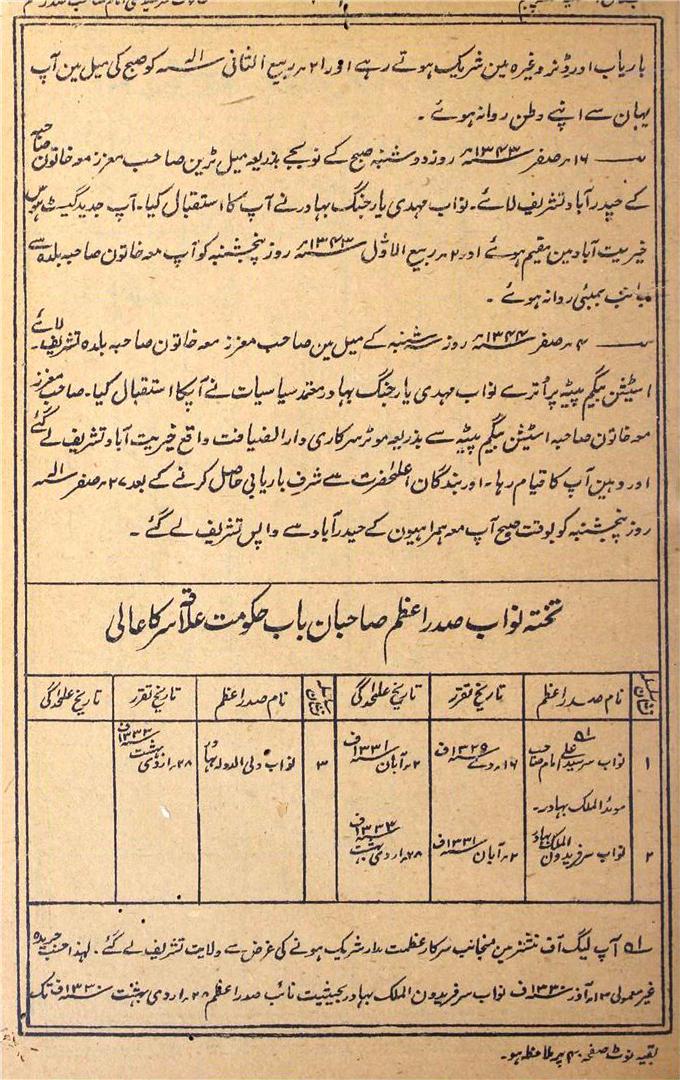 باریاب اور ڈنر وغیرہ مین شریک ہوتے رہے اور ۲۱؍ ربیع الثانی سنہ الیہ کو صبح کی میل مین آپ
یہان سے اپنے وطن روانہ ہوئے ۔
۱۶؍ صفر ۱۳۴۳ھ روز دوشنبہ صبح کے نو بجے بذریعہ میل ٹرین صاحب معزز معہ خاتون صاحبہ
کے حیدرآباد تشریف لائے۔ نواب مہدی یار جنگ بہادر نے آپ کا استقبال کیا۔ آپ جدید گیسٹ ہوس
خیریت آباد مین مقیم ہوئے اور ۲؍ ربیع الاوّل ۱۳۴۳ھ روز پنجشنبہ کو آپ معہ خاتون صاحبہ بلدہ سے
جانب بمبئی روانہ ہوئے ۔
۴؍ صفر ۱۳۴۴ھ روز سہ شنبہ کے میل مین صاحب معزز معہ خاتون صاحبہ بلدہ تشریف لائے ۔
اسٹیشن بیگم پیٹھ پر اُترے نواب مہدی یار جنگ بہادر معتمد سیاسیات نے آپکا استقبال کیا۔ صاحب معزز
معہ خاتون صاحبہ اسٹیشن بیگم پیٹھ سے بذریعہ موٹر سرکاری دارالضیافت واقع خیریت آباد تشریف لے گئے
اور وہین آپ کا قیام رہا۔ اور بندگان اعلیٰحضرت سے شرف باریابی حاصل کرنے کے بعد ۲۷؍ صفر سنہ الیہ
روز پنجشنبہ کو بوقت صبح آپ معہ ہمراہیون کے حیدرآباد سے واپس تشریف لے گئے ۔
تختہ نواب صدر اعظم صاحبان باب حکومت علاقہ سرکار عالی
نشان سلسلہ نام صدر اعظم تاریخ تقرر تاریخ علٰحدگی نشان سلسلہ نام صدر اعظم تاریخ تقرر تاریخ علٰحدگی
۱ نواب سر سید علی امام صاحب ۱۶؍ دے ۱۳۲۹ف ۲؍ آبان ۱۳۳۱ف ۳ نواب ولی الدولہ بہادر ۲۸؍ اردی بہشت ۱۳۳۳ف
موئد الملک بہادر۔
۲ نواب سر فریدون الملک بہادر ۲؍ آبان ۱۳۳۱ف ۲۸؍ اردی بہشت ۱۳۳۳ف
آپ لیگ آف نیشنز مین منجانب سرکار عظمت مدار شریک ہونے کی غرض سے ولایت تشریف لے گئے ۔ لہذا حسب جریدہ
غیر معمولی ۱۳؍ آذر ۱۳۳۰ف نواب سر فریدون الملک بہادر بحیثیت نائب صدر اعظم ۲۸؍ اردی بہشت ۱۳۳۰ف تک
بقیہ نوٹ صفحہ ۴۰ پر ملاحظہ ہو۔